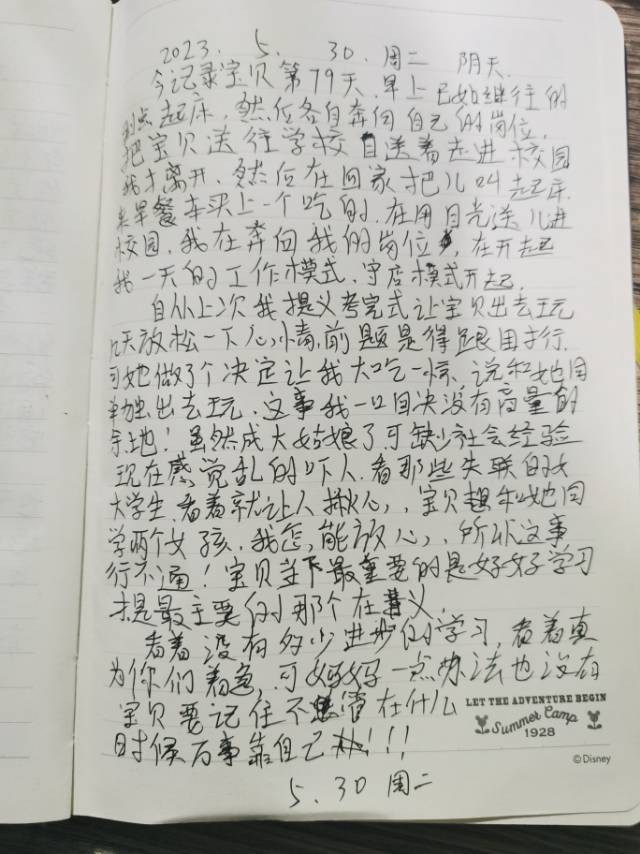 2023. 5. 30. 周二 阴天.
今记录宝贝第79天.早上已如继往的
到点起床,然后各自奔向自己的岗位,
把宝贝送往学校 目送着走进校园
我才离开.然后在回家把儿叫起床.
来早餐车买上一个吃的.在用目光送儿进
校园,我在奔向我的岗位,在开起
我一天的工作模式.守店模式开起.
自从上次我提义考完式让宝贝出去玩
几天放松一下心情,前题是得跟团才行.
可她做了个决定让我大吃一惊.说和她同
单独出去玩.这事我一口回决没有商量的
余地!虽然成大姑娘了可缺少社会经验
现在感觉乱的吓人.看那些失联的女
大学生.看着就让人揪心,,宝贝想和她同
学两个女孩.我怎能放心,,所以这事
行不通!宝贝当下最重要的是好好学习
才是最主要的那个在义.
看着没有多少进步的学习,看着真
为你们着急,可妈妈一点办法也没有
宝贝要记住不管在什么
时候万事靠自己!!!
LET THE ADVENTURE BEGIN
Summer Camp
1928
©Disney
5. 30 周二